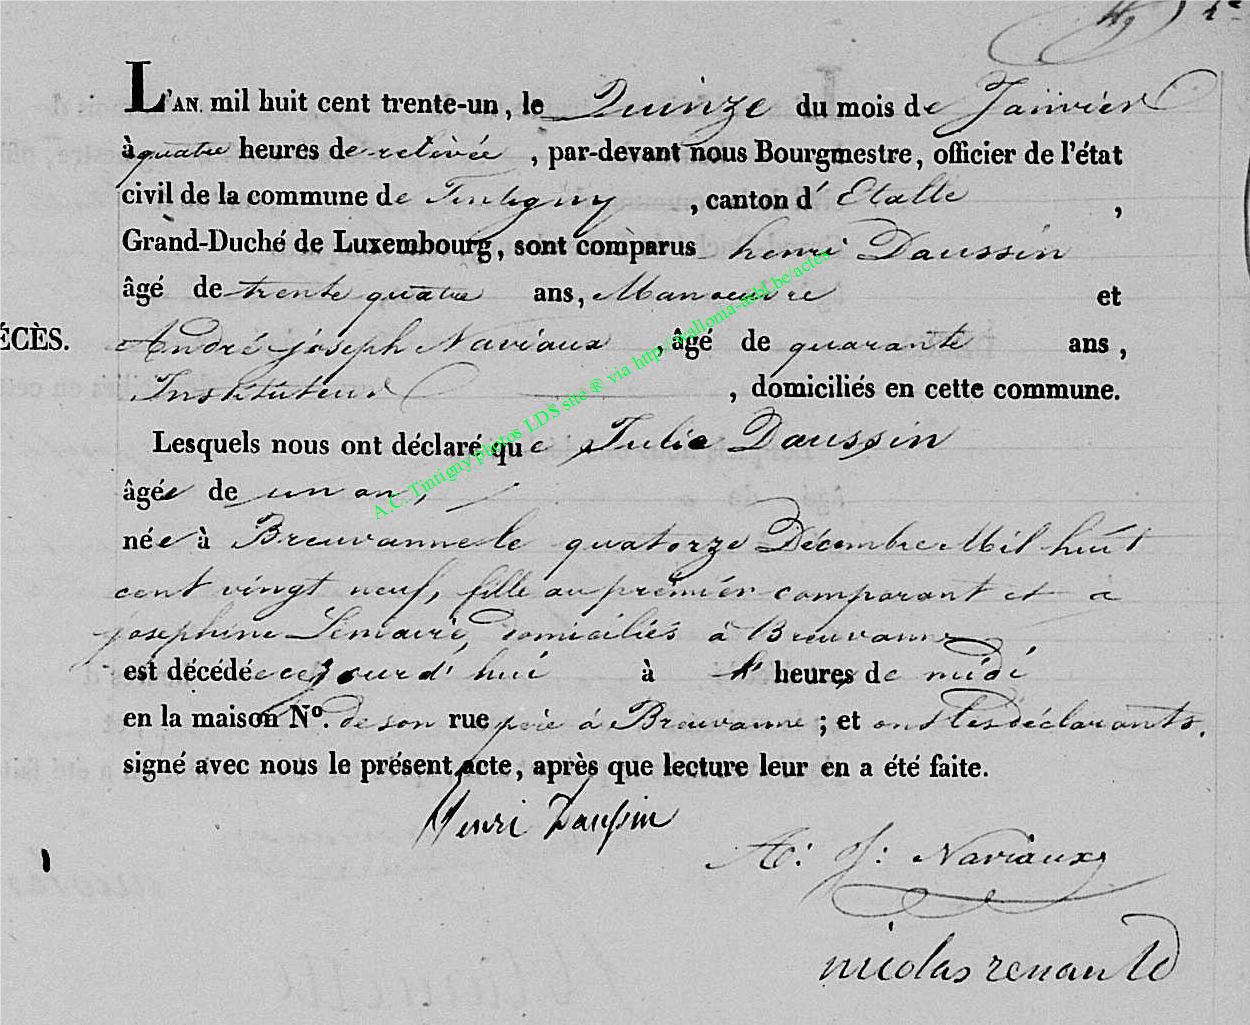 L'AN mil huit cent trente-un, le Quinze du mois de Janvier
à quatre heures de relevée, par-devant nous Bourgmestre, officier de l'état
civil de la commune de Tintigny, canton d'Etalle,
Grand-Duché de Luxembourg, sont comparus henri Daussin
âgé de trente quatre ans, Manoeuvre et
ÉCÈS.
André joseph Naviaux, âgé de quarante ans,
Instituteur, domiciliés en cette commune.
Lesquels nous ont déclaré que Julie Daussin
âgée de un an,
née à Breuvanne le quatorze Décembre Mil huit
cent vingt neuf, fille au premier comparant et à
josephine Lemaire, domiciliés à Breuvanne
est décédée ce jourd'hui à heures de midi
en la maison No. de son rue pére à Breuvanne; et ont les déclarants.
signé avec nous le présent acte, après que lecture leur en a été faite.
Henri Daussin
A: J: Naviaux
nicolas renauld
A.C. Tintigny photos LDS site ® via http://wallonia-asbl.be/actes